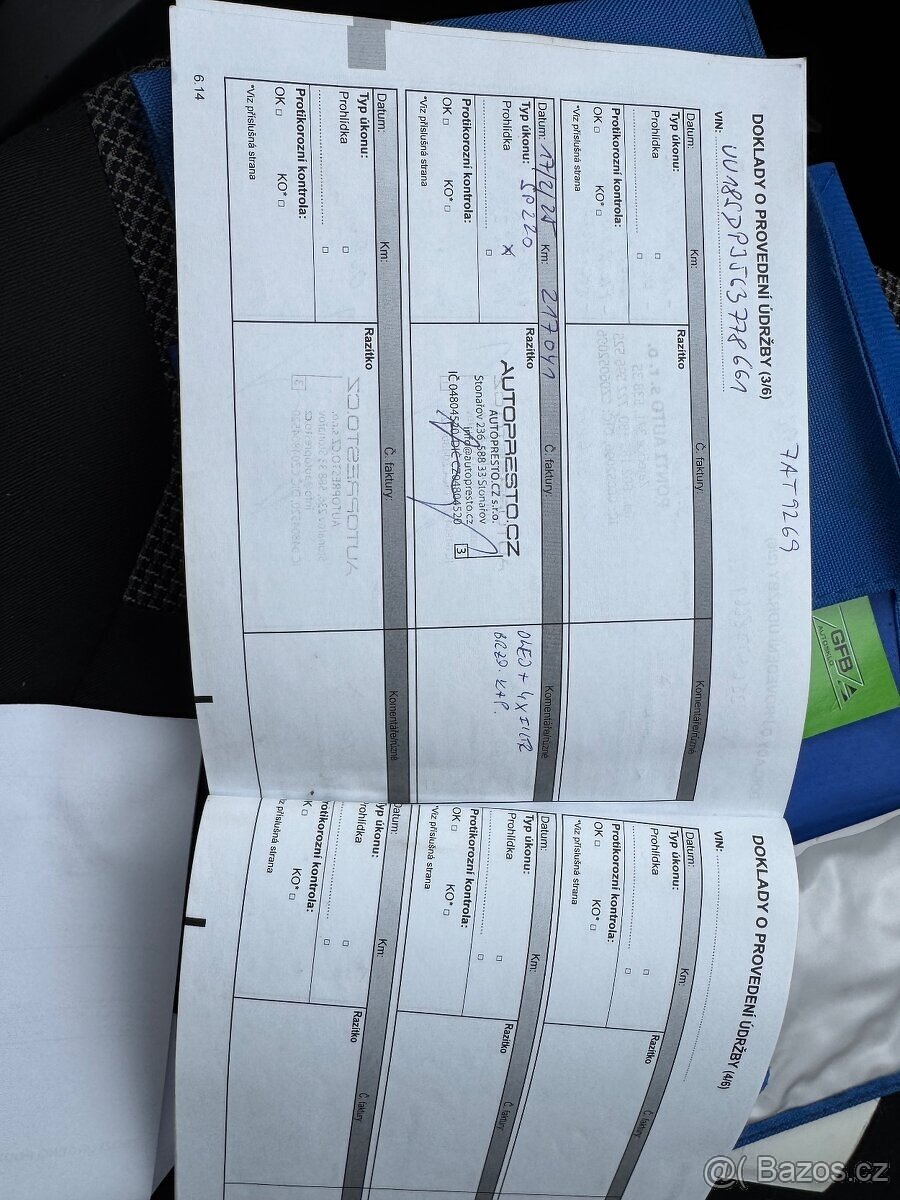 7AT9269
DOKLADY O PROVEDENÍ ÚDRŽBY (3/6)
VIN: UU18SDPJ563778661
Datum: Km: Č. faktury: Komentáře/různé
Typ úkonu: Razítko
Prohlídka □
□
Protikorozní kontrola:
OK □ KO* □
*Viz příslušná strana
Datum: 17/2/25 Km: 217041 Č. faktury: Komentáře/různé
Typ úkonu: SP220 Razítko
Prohlídka x
□
Protikorozní kontrola:
OK □ KO* □
*Viz příslušná strana
AUTOPRESTO.CZ
AUTOPRESTO.CZ s.r.o.
Stonařov 236, 588 33 Stonařov
info@autopresto.cz
IČ 04804520, DIČ CZ04804520
3
OLEJ + 4x FILTR
BRZD. K+P.
Datum: Km: Č. faktury: Komentáře/různé
Typ úkonu: Razítko
Prohlídka □
□
Protikorozní kontrola:
OK □ KO* □
*Viz příslušná strana
6.14
DOKLADY O PROVEDENÍ ÚDRŽBY (4/6)
VIN:
Datum: Km: Č. faktury:
Typ úkonu: Razítko
Prohlídka □
□
Protikorozní kontrola:
OK □ KO* □
*Viz příslušná strana
Datum: Km: Č. faktury:
Typ úkonu: Razítko
Prohlídka □
□
Protikorozní kontrola:
OK □ KO* □
*Viz příslušná strana
Datum: Km: Č. faktury:
Typ úkonu: Razítko
Prohlídka □
□
rotikorozní kontrola:
K □ KO* □
iz příslušná strana
GFB
AUTOSKLO
@( Bazos.cz